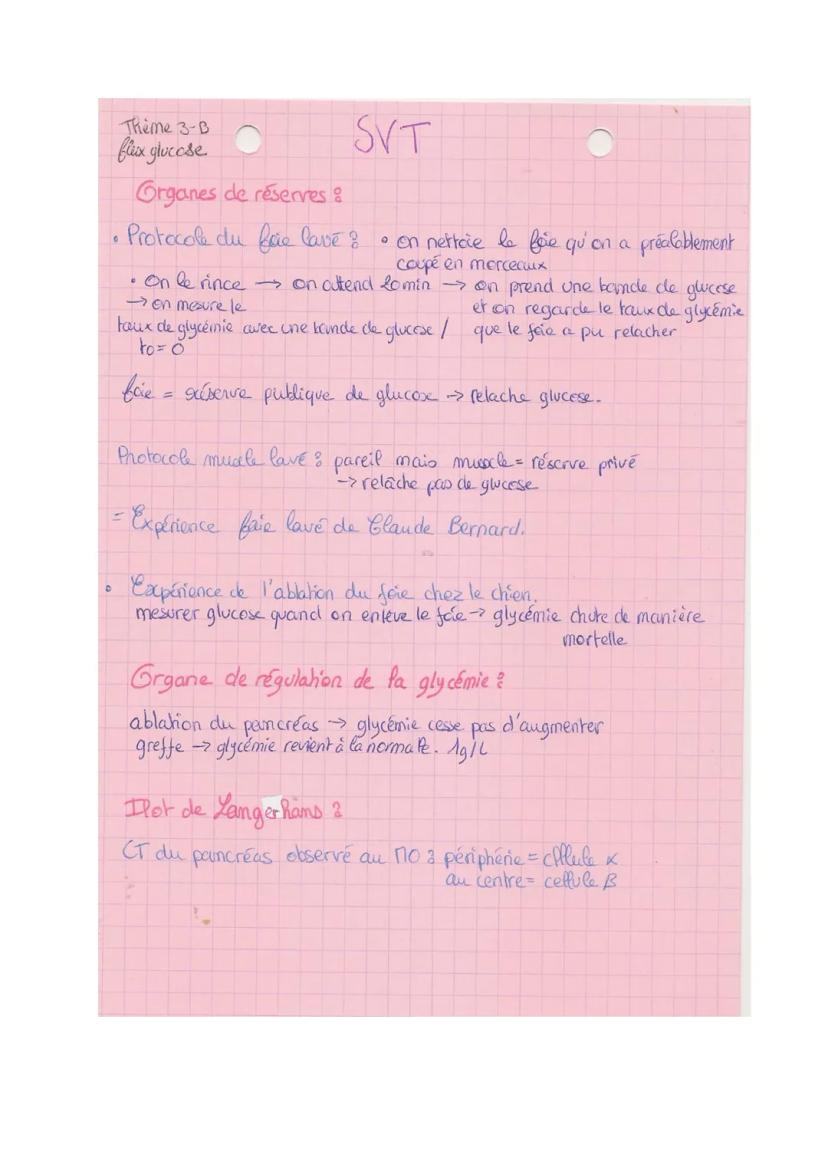 Thème 3-B
flux glucose
SVT
Organes de réserves :
• Protocole du foie lavé : • on nettoie le foie qu'on a préalablement
coupé en morceaux
• On le rince → on attend 20min → on prend une bande de glucose
→ on mesure le
et on regarde le taux de glycémie
taux de glycémie avec une bande de glucose /
que le foie a pu relacher
t0 = 0
foie = réserve publique de glucose → relache glucose.
Protocole muscle lavé : pareil mais muscle = réserve privé
→ relâche pas de glucose
= Expérience foie lavé de Claude Bernard.
• Expérience de l'ablation du foie chez le chien.
mesurer glucose quand on enlève le foie → glycémie chute de manière
mortelle
Organe de régulation de la glycémie :
ablation du pancréas → glycémie cesse pas d'augmenter
greffe → glycémie revient à la normale. 1g/L
Ilot de Langerhans :
CT du pancréas observé au MO : périphérie = cellule α
au centre = cellule β